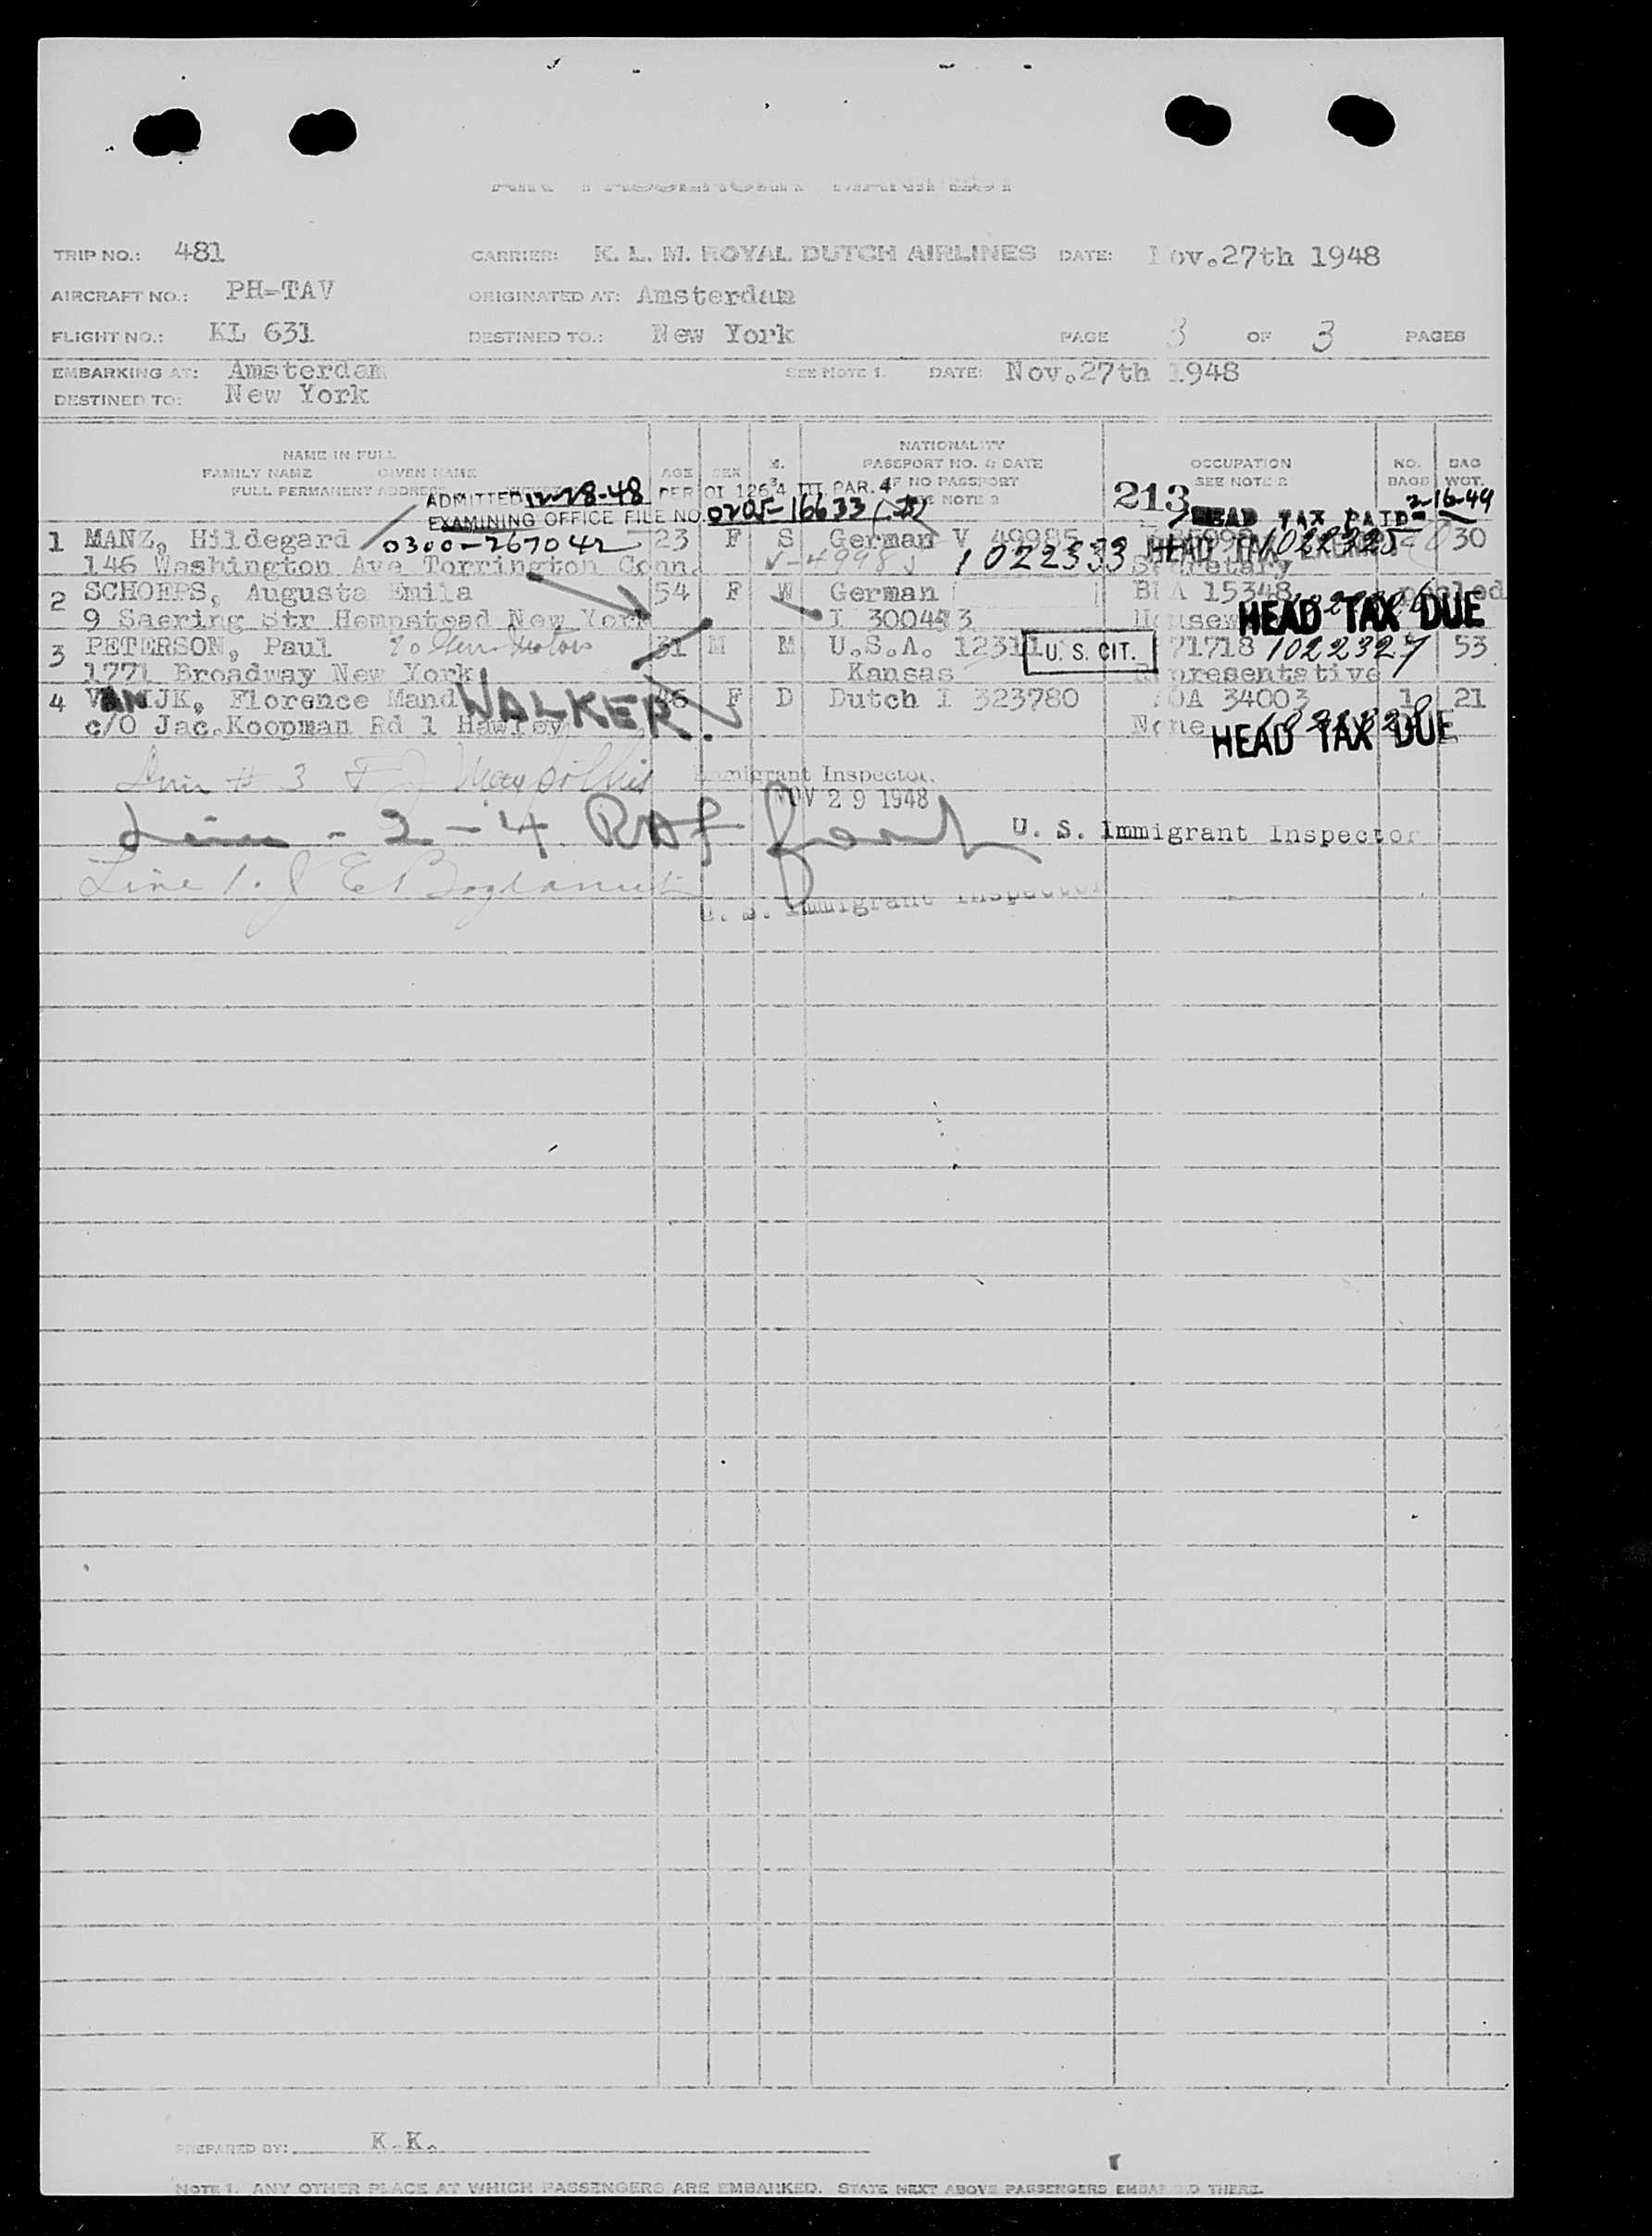 AIR PASSENGER MANIFEST
TRIP NO.: 481 CARRIER: K. L. M. ROYAL DUTCH AIRLINES DATE: Nov.27th 1948
AIRCRAFT NO.: PH-TAV ORIGINATED AT: Amsterdam
FLIGHT NO.: KL 631 DESTINED TO.: New York PAGE 3 OF 3 PAGES
EMBARKING AT: Amsterdam SEE NOTE 1. DATE: Nov.27th 1948
DESTINED TO: New York
NAME IN FULL
FAMILY NAME GIVEN NAME
FULL PERMANENT ADDRESS
AGE SEX
NATIONALITY
PASSPORT NO. & DATE
IF NO PASSPORT
SEE NOTE 3
OCCUPATION
SEE NOTE 2
NO. BAGS
BAG WGT.
ADMITTED 12-28-48 PER OI 126.4 III PAR. 4
EXAMINING OFFICE FILE NO. 0205-16633
213 2-16-49
HEAD TAX PAID
1 MANZ, Hildegard 0300-267042 23 F S German V 49985 1022325 30
146 Washington Ave Torrington Conn. V-49985 1022333 Secretary
2 SCHOEPS, Augusta Emila 54 F W German 15348
9 Saering Str Hempstead New York I 300453 HEAD TAX DUE
3 PETERSON, Paul % Gen. Motors 31 M M U.S.A. 12311 U. S. CIT. 71718 1022327 53
1771 Broadway New York Kansas Representative
4 VAN JK, Florence Mand WALKER. 46 F D Dutch I 323780 AOA 34003 1 21
c/O Jac.Koopman Rd 1 Hawley None HEAD TAX DUE
Line # 3 Immigrant Inspector.
NOV 29 1948
Line - 2 - 4 U. S. Immigrant Inspector
Line 1.
U. S. Immigrant Inspector
PREPARED BY: K.K.
NOTE 1. ANY OTHER PLACE AT WHICH PASSENGERS ARE EMBARKED. STATE NEXT ABOVE PASSENGERS EMBARKED THERE.